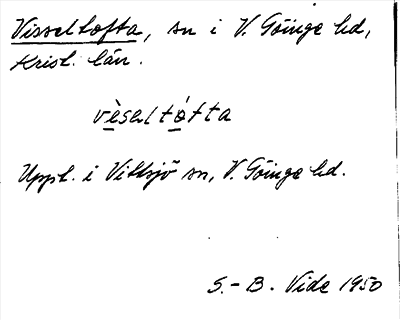 Visseltofta, sn i V. Göinge hd,
Krist. län.
vèseltòfta
Uppt. i Vittsjö sn, V. Göinge hd.
S.-B. Vide 1950